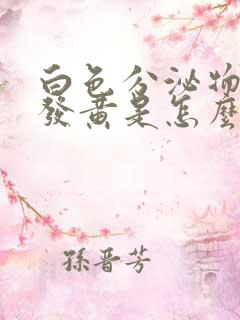 白色分泌物
發黃是怎麼
孫晋芳